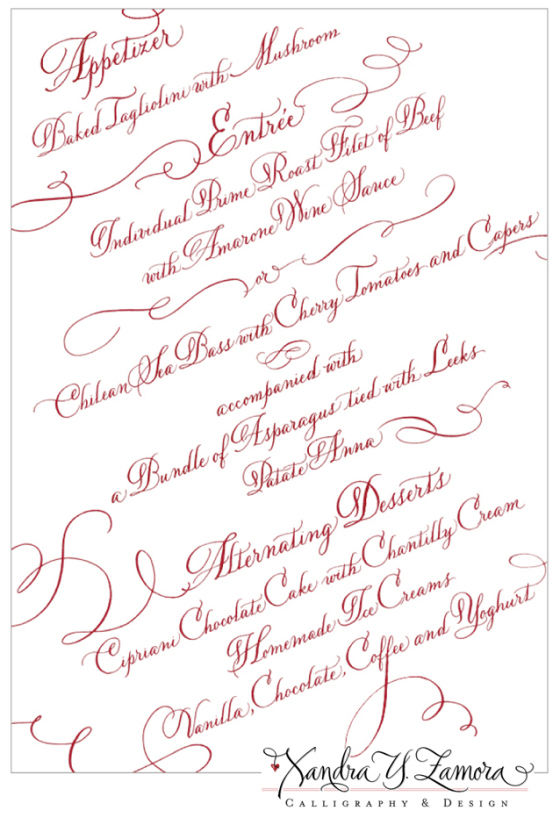 Appetizer
Baked Tagliolini with Mushroom
Entrée
Individual Prime Roast Filet of Beef
with Amarone Wine Sauce
or
Chilean Sea Bass with Cherry Tomatoes and Capers
accompanied with
a Bundle of Asparagus tied with Leeks
Patate Anna
Alternating Desserts
Cipriani Chocolate Cake with Chantilly Cream
Homemade Ice Creams
Vanilla, Chocolate, Coffee and Yoghurt
Xandra Y. Zamora
CALLIGRAPHY & DESIGN